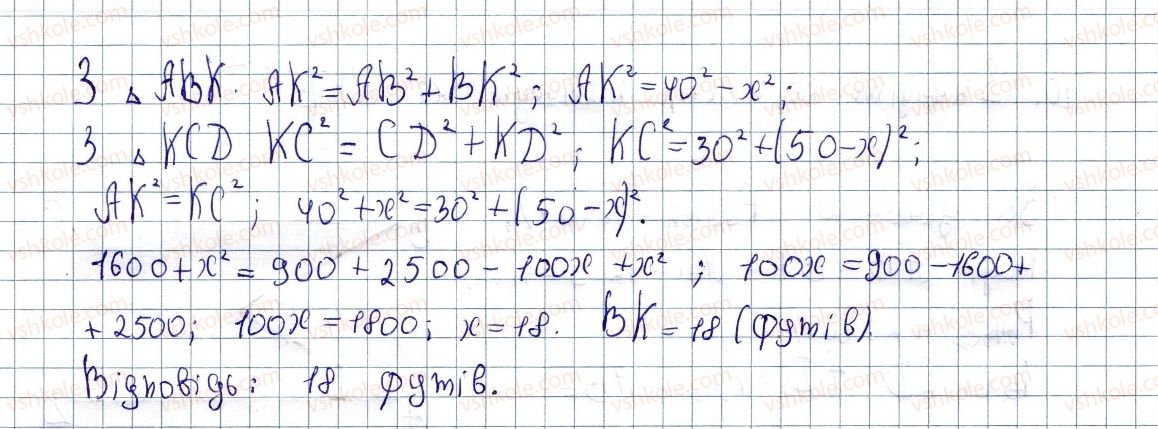 З △ ABK. AK² = AB² + BK²; AK² = 40² − x²;
З △ KCD KC² = CD² + KD²; KC² = 30² + (50 − x)²;
AK² = KC²; 40² + x² = 30² + (50 − x)².
1600 + x² = 900 + 2500 − 100x + x²; 100x = 900 − 1600 +
+ 2500; 100x = 1800; x = 18. BK = 18 (футів).
Відповідь: 18 футів.